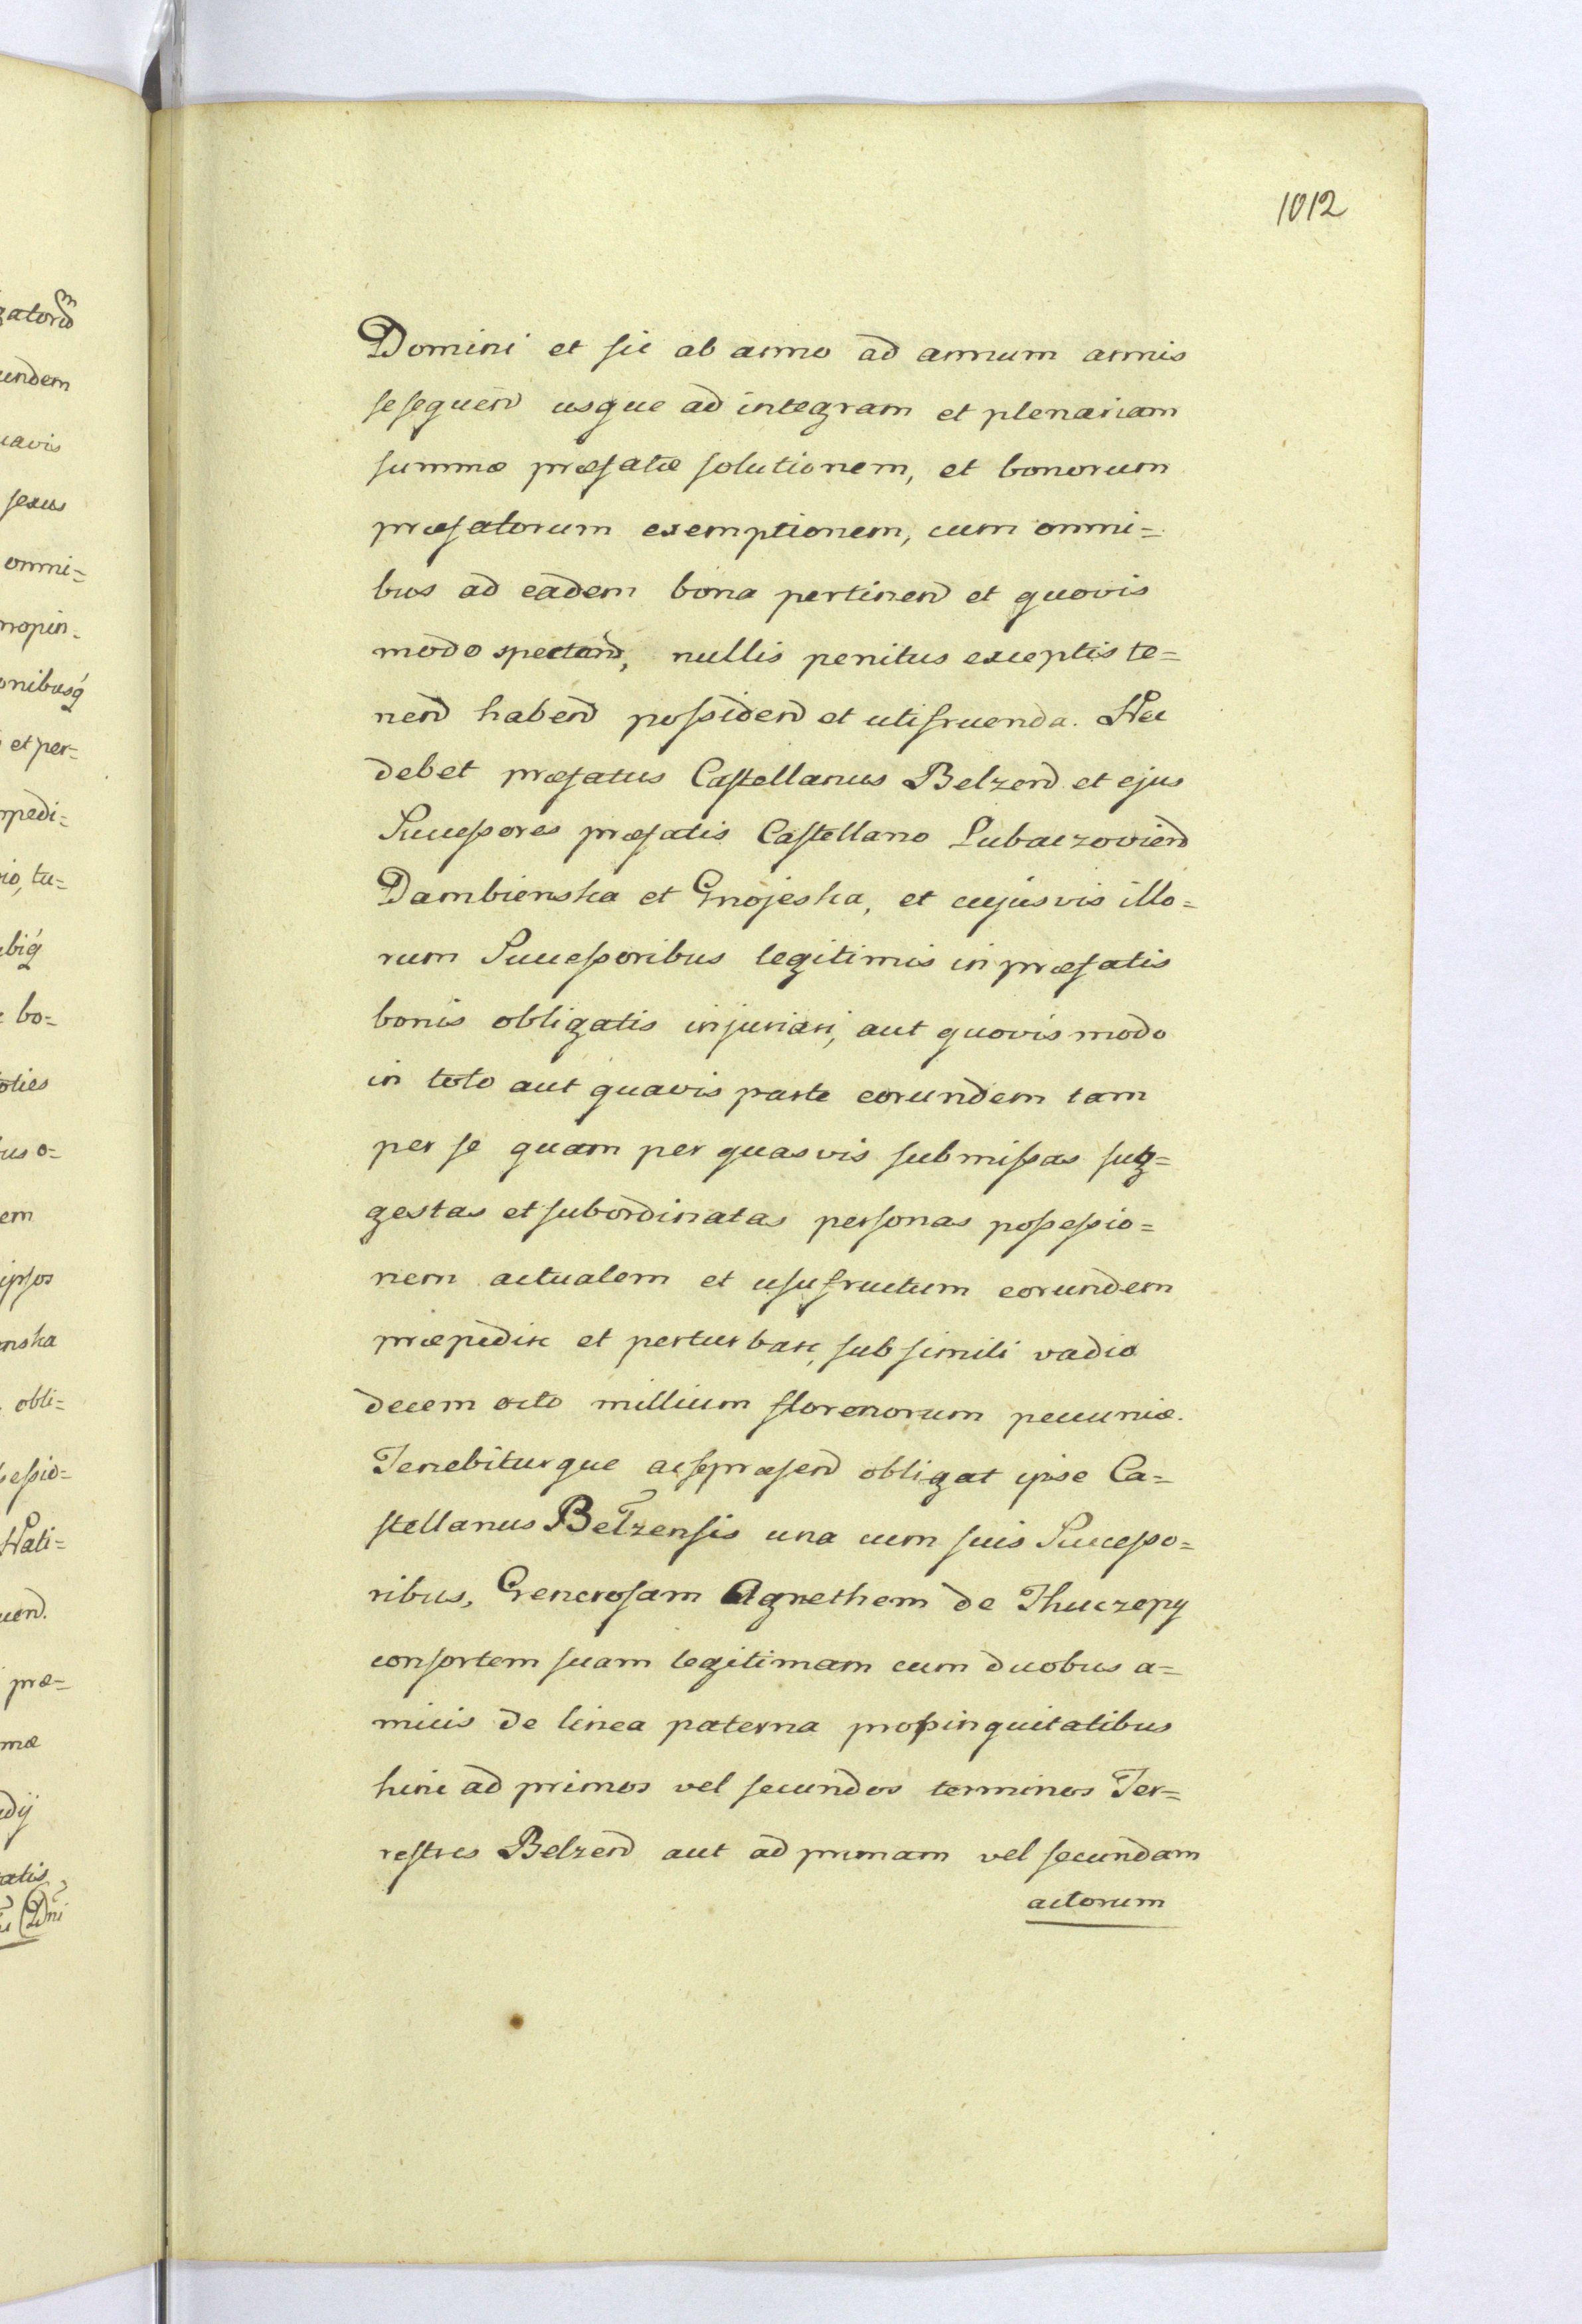 1012
Domini et sic ab anno ad annum annis
sesequen usque ad integram et plenariam
summæ præfatæ solutionem, et bonorum
præfatorum exemptionem, cum omni=
bus ad eadem bona pertinen et quovis
modo spectan, nullis penitus exceptis te=
nen haben possiden et utifruenda. Nec
debet præfatus Castellanus Belzen et ejus
Successores præfatis Castellano Lubaczovien
Dambienska et Gnojeska, et cujusvis illo=
rum Successoribus legitimis in præfatis
bonis obligatis injuriari, aut quovis modo
in toto aut quavis parte eorundem tam
per se quam per quasvis submissas sug=
gestas et subordinatas personas possessio=
nem actualem et usufructum eorundem
præpedire et perturbare, sub simili vadio
decem octo millium florenorum pecuniæ.
Tenebiturque ac se præsen obligat ipse Ca=
stellanus Belzensis una cum suis Successo=
ribus, Generosam Agnethem de Thuczepy
consortem suam legitimam cum duobus a=
micis de linea paterna propinquitatibus
hinc ad primos vel secundos terminos Ter=
restres Belzen aut ad primam vel secundam
actorum